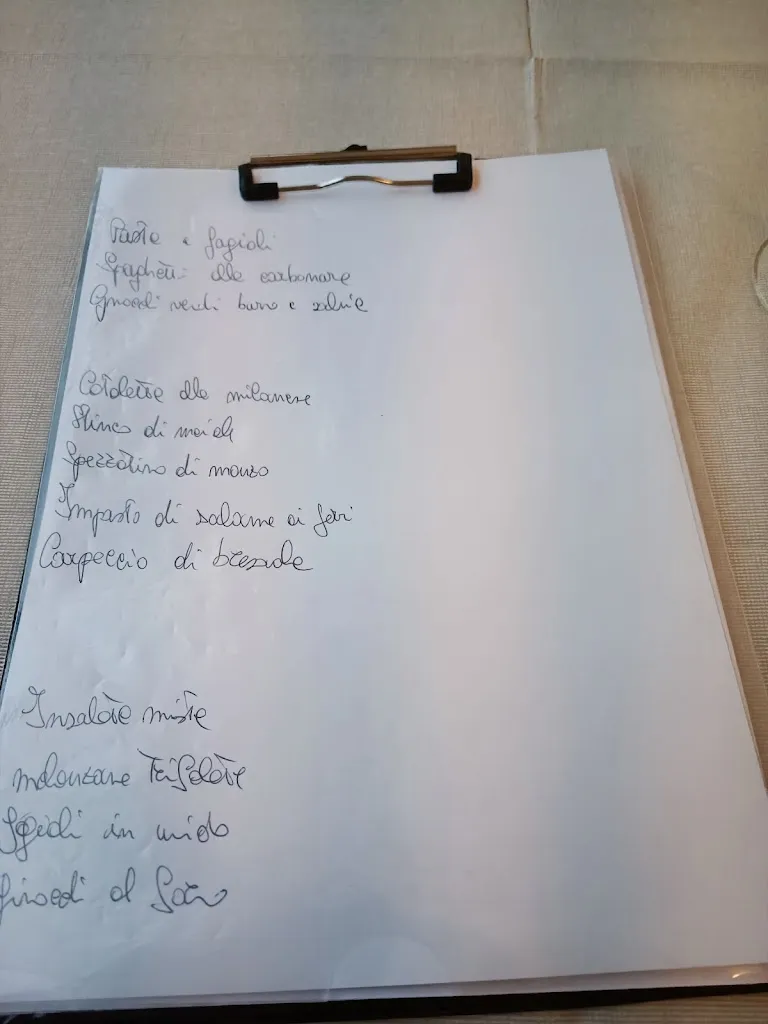 Pasta e fagioli
Spaghetti alla carbonara
Gnocchi verdi burro e salvia
Cotoletta alla milanese
Stinco di maiale
Spezzatino di manzo
Impasto di salame ai ferri
Carpaccio di bresaola
Insalata mista
melanzane trifolate
Fagioli in umido
finocchi al forno